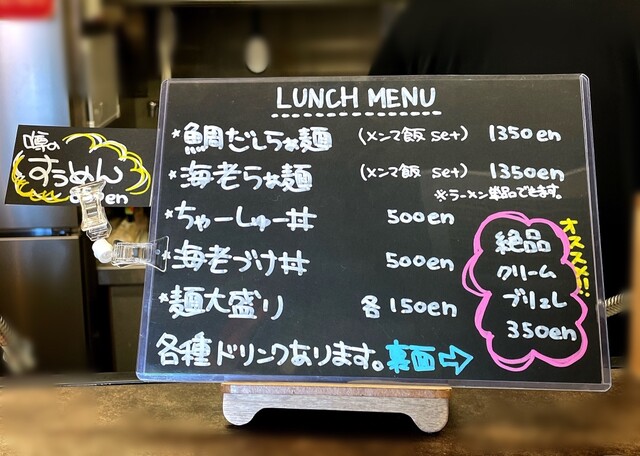 LUNCH MENU
*鯛だしらぁ麺 (メンマ飯 set) 1350en
*海老らぁ麺 (メンマ飯 set) 1350en
※ラーメン単品でできます。
*ちゃーしゅー丼 500en
*海老づけ丼 500en
*麺大盛り 各150en
各種ドリンクあります。裏面⇨
オススメ!!
絶品
クリーム
ブリュレ
350en
噂の
すうめん
850en